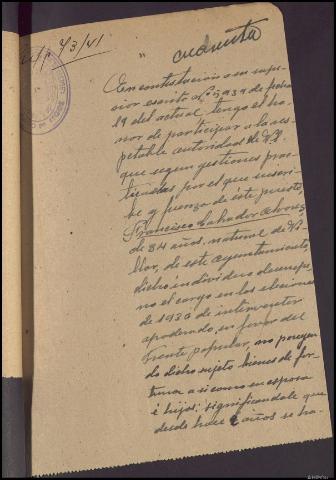 73/41
cuarenta
En contestacion a su supe-
rior escrito nº 5939 de fecha
19 del actual tengo el ho-
nor de participar a la res-
petable autoridad de Vd.
que segun gestiones prac-
ticadas por el que suscri-
be y fuerza de este puesto,
Francisco Salvador Alvarez
de 34 años, natural de
llor, de este ayuntamiento,
dicho individuo desempe-
ño el cargo en las elecciones
de 1936 de interventor
apoderado, en favor del
Frente popular, no poseyen-
do dicho sujeto bienes de for-
tuna a si como su esposa
é hijos; significandole que
desde hace años se ha-